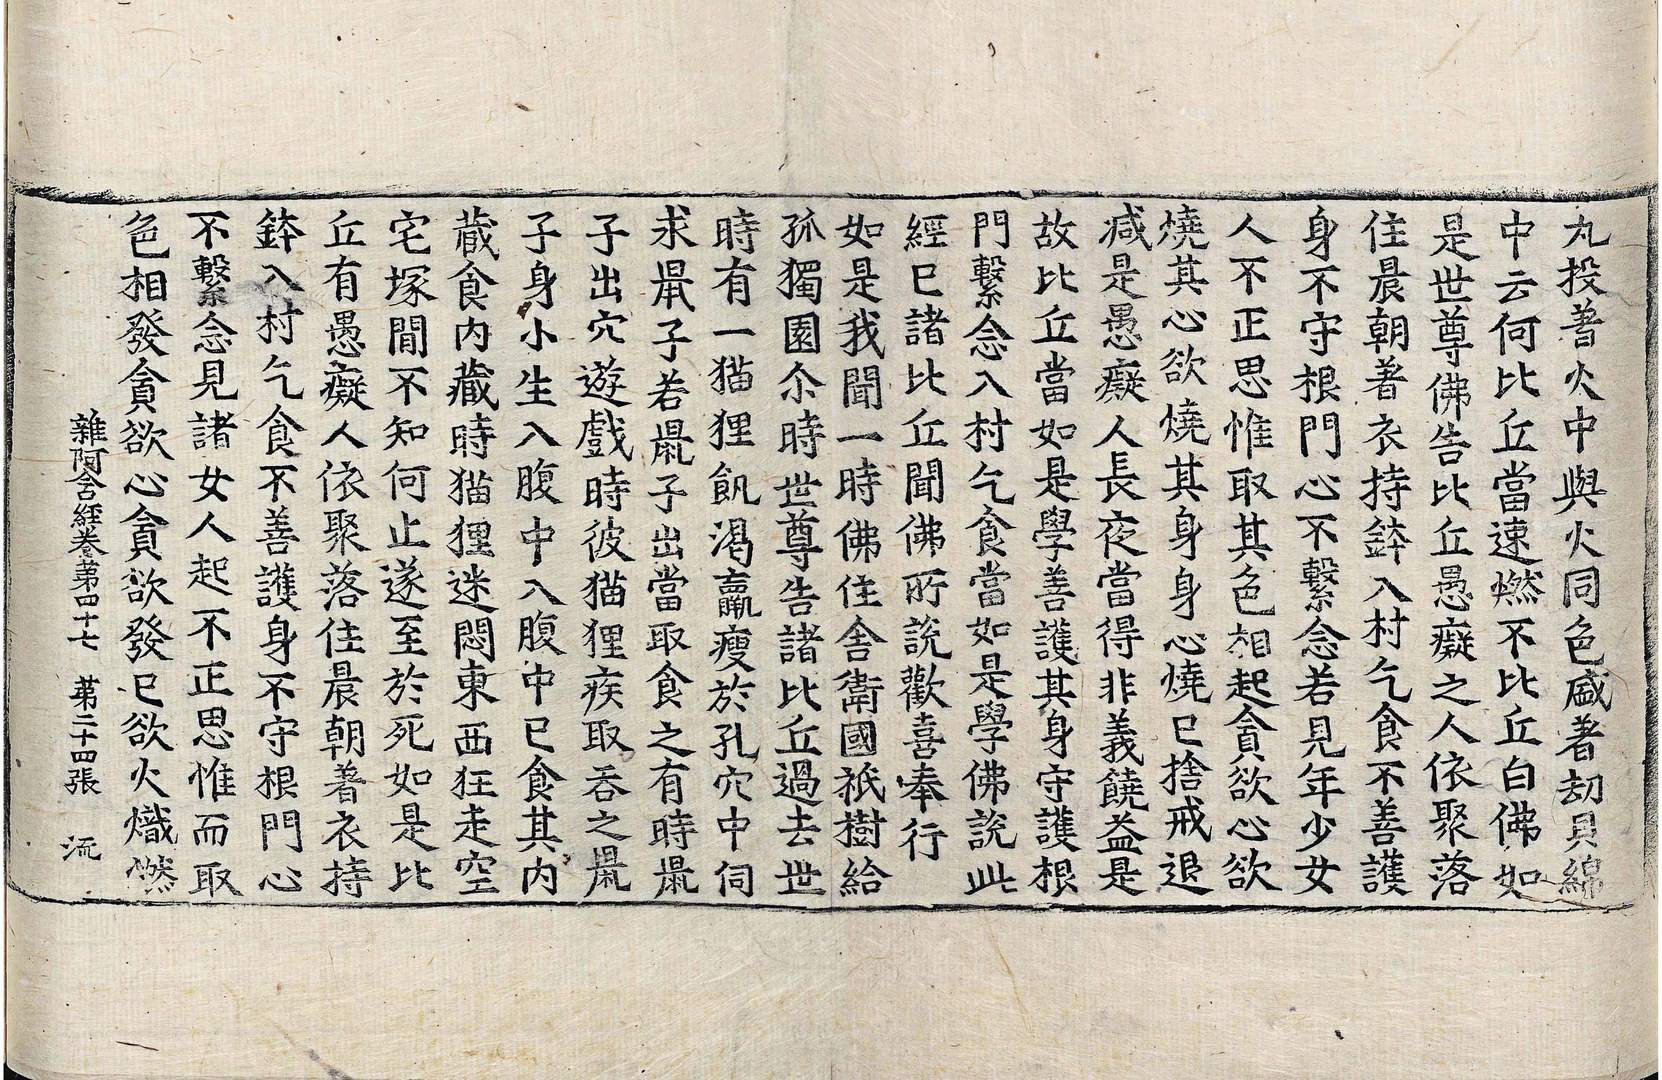 丸投著火中與火同色盛著劫貝綿
中云何比丘當速燃不比丘白佛如
是世尊佛告比丘愚癡之人依聚落
住晨朝著衣持鉢入村乞食不善護
身不守根門心不繫念若見年少女
人不正思惟取其色相起貪欲心欲
燒其心欲燒其身身心燒已捨戒退
減是愚癡人長夜當得非義饒益是
故比丘當如是學善護其身守護根
門繫念入村乞食當如是學佛說此
經已諸比丘聞佛所說歡喜奉行
如是我聞一時佛住舍衛國祇樹給
孤獨園尒時世尊告諸比丘過去世
時有一猫狸飢渴羸瘦於孔穴中伺
求鼠子若鼠子出當取食之有時鼠
子出穴遊戲時彼猫狸疾取吞之鼠
子身小生入腹中入腹中已食其內
藏食內藏時猫狸迷悶東西狂走空
宅塚閒不知何止遂至於死如是比
丘有愚癡人依聚落住晨朝著衣持
鉢入村乞食不善護身不守根門心
不繫念見諸女人起不正思惟而取
色相發貪欲心貪欲發已欲火熾燃
雜阿含經卷第四十七 第二十四張 流